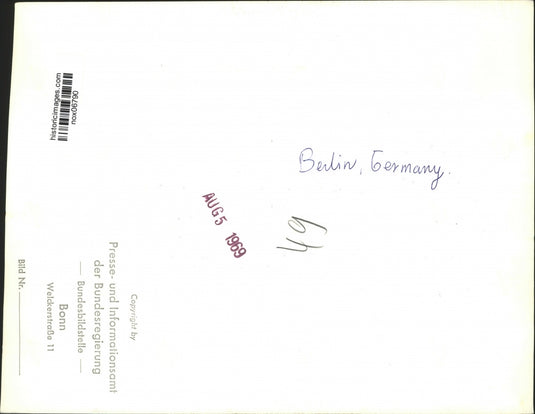 historicimages.com
nox06790
Berlin, Germany.
AUG 5 1969
49
Copyright by
Presse- und Informationsamt
der Bundesregierung
— Bundesbildstelle —
Bonn
Welckerstraße 11
Bild Nr.